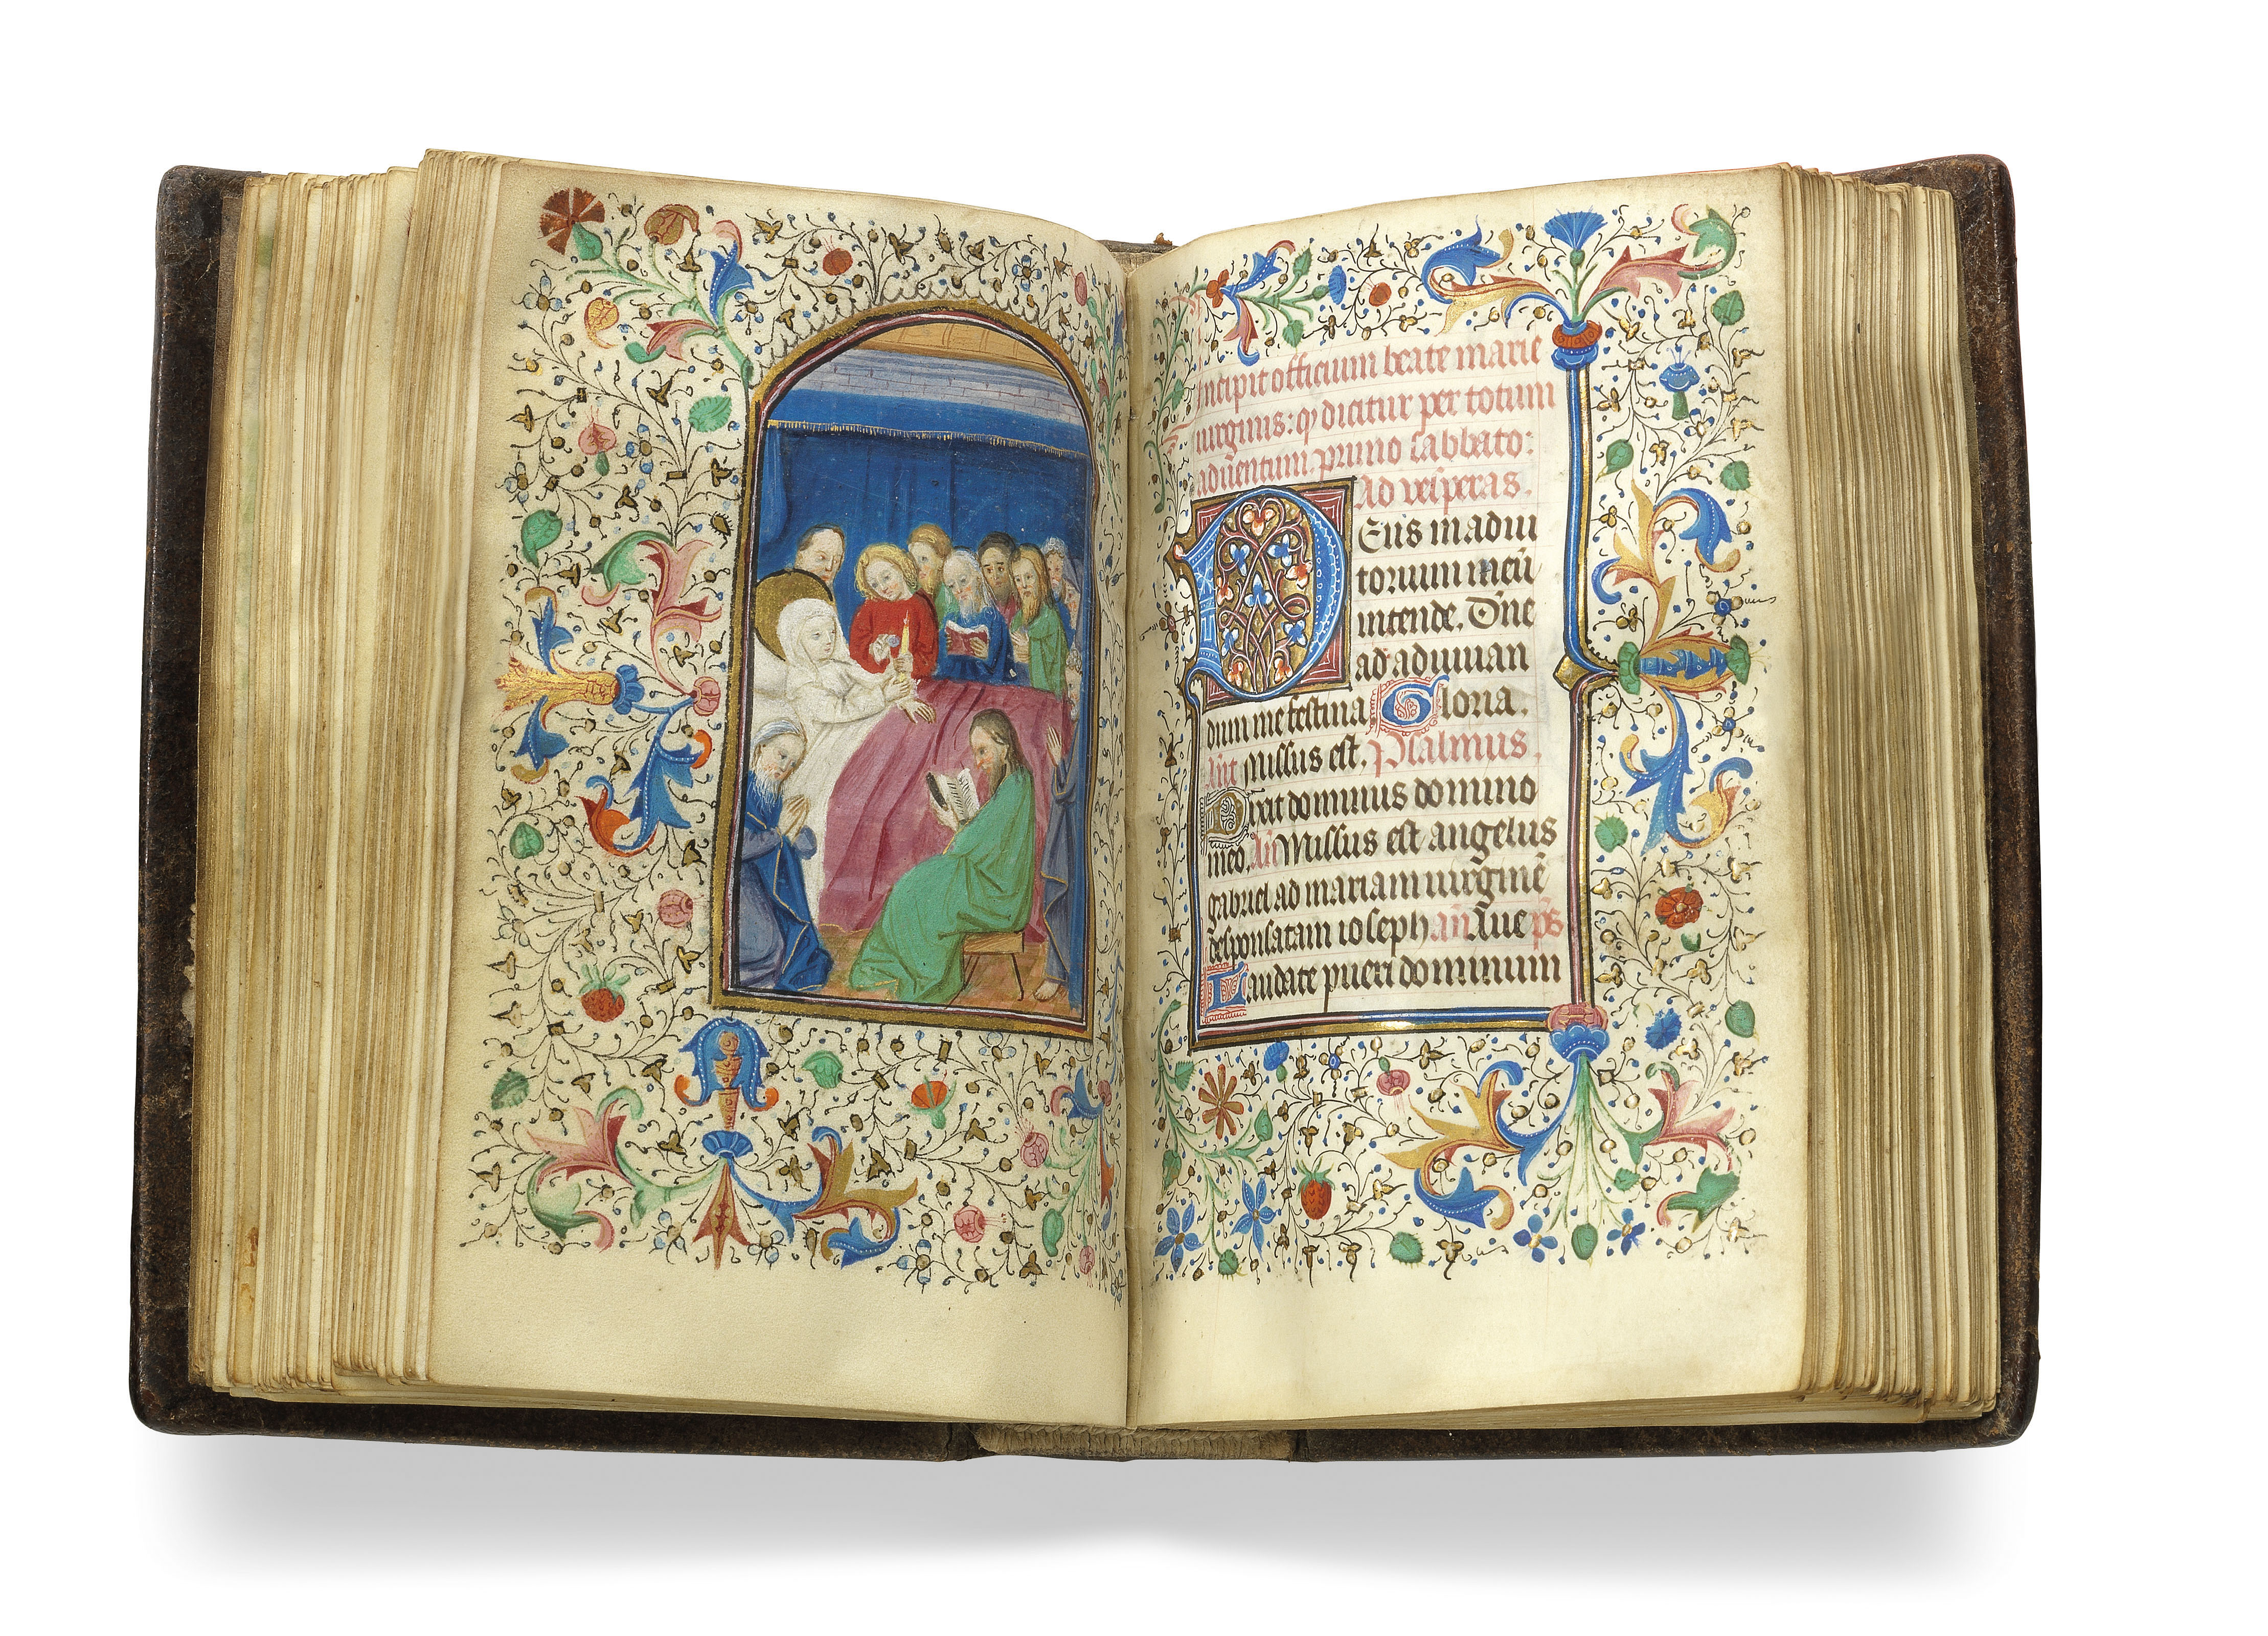 Incipit officium beate marie
uirginis: q̄ dicitur per totum
aduentum. primo sabbato:
Ad vesperas.
Deus in adiu
torium meū
intende. Dn̄e
ad adiuuan
dum me festina Gloria.
Ant̄ Missus est. Psalmus.
Dixit dominus domino
meo. an̄ Missus est angelus
gabriel ad mariam uirginē
desponsatam ioseph an̄ Aue ps̄
Laudate pueri dominum